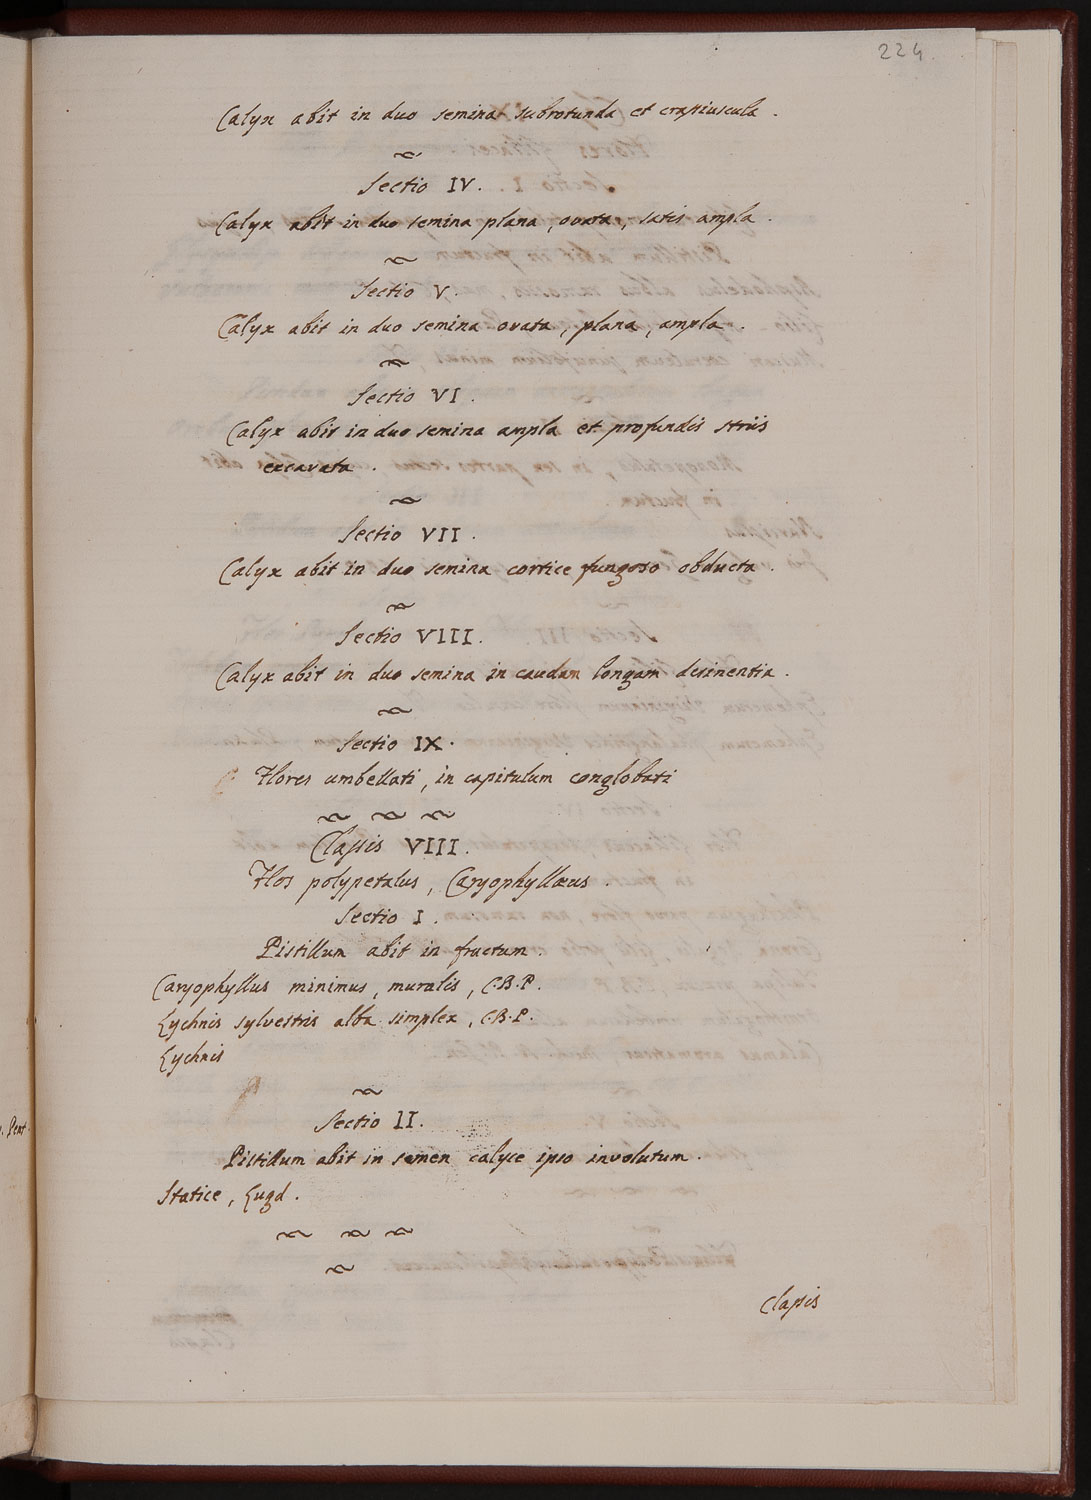 224.
Calyx abit in duo semina subrotunda et crassiuscula.
Sectio IV.
Calyx abit in duo semina plana, ovata, satis ampla.
Sectio V.
Calyx abit in duo semina ovata, plana, ampla.
Sectio VI.
Calyx abit in duo semina ampla et profundis striis
excavata.
Sectio VII.
Calyx abit in duo semina cortice fungoso obducta.
Sectio VIII.
Calyx abit in duo semina in caudam longam desinentia.
Sectio IX.
Flores umbellati, in capitulum conglobati
Classis VIII.
Flos polypetalus, Caryophyllæus.
Sectio I.
Pistillum abit in fructum.
Caryophyllus minimus, muralis, C.B.P.
Lychnis sylvestris alba simplex, C.B.P.
Lychnis
Sectio II.
Pistillum abit in semen calyce ipso involutum.
Statice, Lugd.
Classis